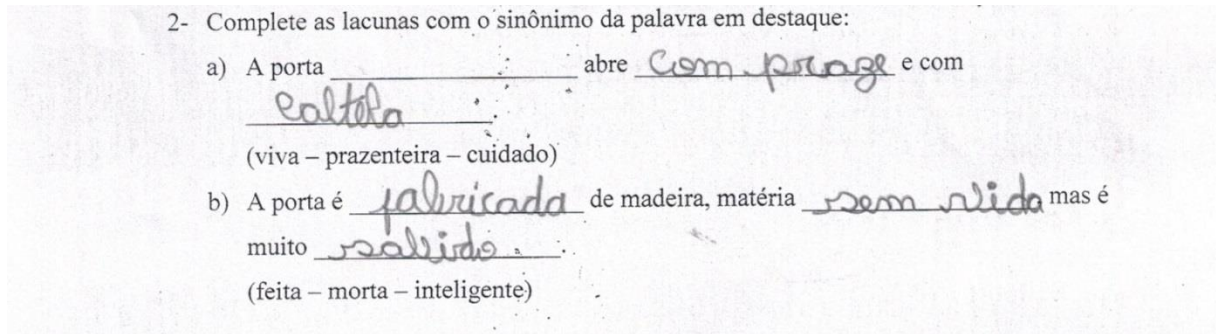 2- Complete as lacunas com o sinônimo da palavra em destaque:
a) A porta ______________ abre com praze e com
caltola.
(viva – prazenteira – cuidado)
b) A porta é fabricada de madeira, matéria sem vida mas é
muito sabido.
(feita – morta – inteligente)